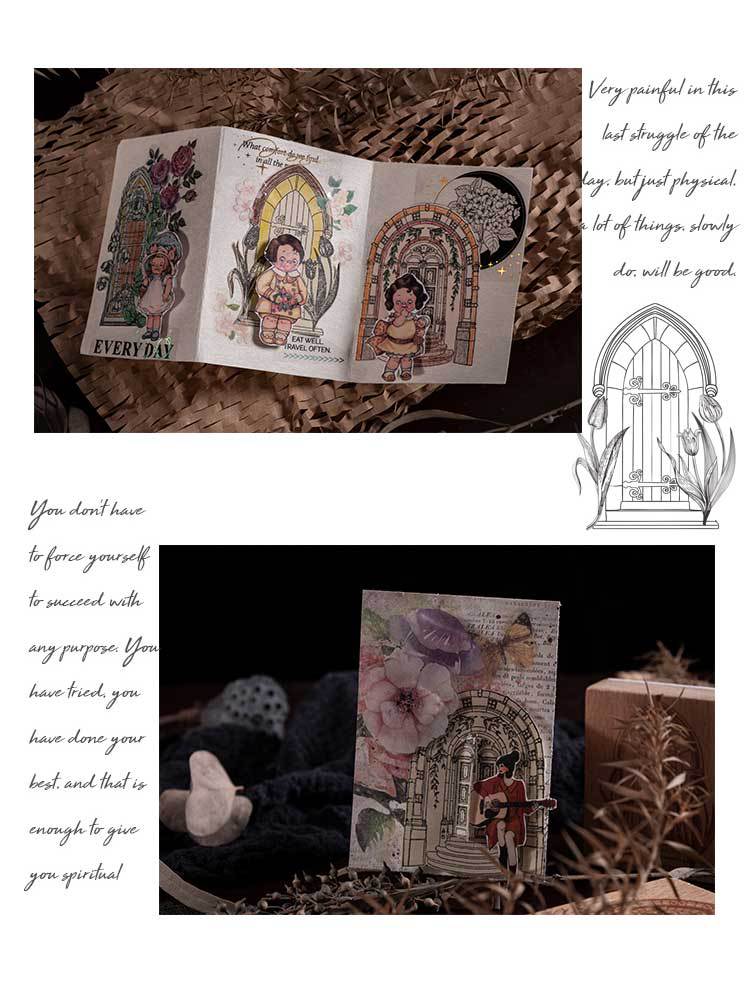 Very painful in this
last struggle of the
day, but just physical.
a lot of things, slowly
do, will be good.
What comfort do we find
in all the
EVERY DAY
EAT WELL.
TRAVEL OFTEN.
You don't have
to force yourself
to succeed with
any purpose. You
have tried, you
have done your
best, and that is
enough to give
you spiritual